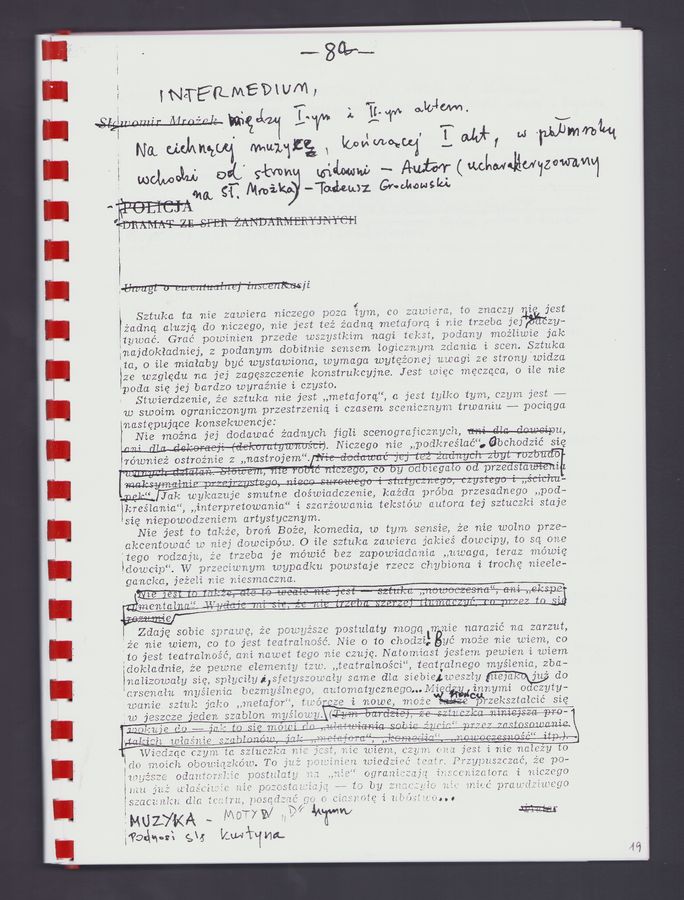 — 8a —
INTERMEDIUM,
Sławomir Mrożek między I-ym i II-ym aktem.
Na cichnącej muzyce, kończącej I akt, w półmroku
wchodzi od strony widowni — Autor (ucharakteryzowany
na Sł. Mrożka) – Tadeusz Grochowski
POLICJA
DRAMAT ZE SFER ŻANDARMERYJNYCH
Uwagi o ewentualnej inscenizacji
Sztuka ta nie zawiera niczego poza tym, co zawiera, to znaczy nie jest
żadną aluzją do niczego, nie jest też żadną metaforą i nie trzeba jej tak odczy-
tywać. Grać powinien przede wszystkim nagi tekst, podany możliwie jak
najdokładniej, z podanym dobitnie sensem logicznym zdania i scen. Sztuka
ta, o ile miałaby być wystawiona, wymaga wytężonej uwagi ze strony widza
ze względu na jej zagęszczenie konstrukcyjne. Jest więc męcząca, o ile nie
poda się jej bardzo wyraźnie i czysto.
Stwierdzenie, że sztuka nie jest „metaforą“, a jest tylko tym, czym jest —
w swoim ograniczonym przestrzenią i czasem scenicznym trwaniu — pociąga
następujące konsekwencje:
Nie można jej dodawać żadnych figli scenograficznych, ani dla dowcipu,
ani dla dekoracji (dekoratywności). Niczego nie „podkreślać“. Obchodzić się
również ostrożnie z „nastrojem“. Nie dodawać jej też żadnych zbyt rozbudo-
wanych działań. Słowem, nie robić niczego, co by odbiegało od przedstawienia
maksymalnie przejrzystego, nieco surowego i statycznego, czystego i „ścichu-
pęk“. Jak wykazuje smutne doświadczenie, każda próba przesadnego „pod-
kreślania“, „interpretowania“ i szarżowania tekstów autora tej sztuczki staje
się niepowodzeniem artystycznym.
Nie jest to także, broń Boże, komedia, w tym sensie, że nie wolno prze-
akcentować w niej dowcipów. O ile sztuka zawiera jakieś dowcipy, to są one
tego rodzaju, że trzeba je mówić bez zapowiadania „uwaga, teraz mówię
dowcip“. W przeciwnym wypadku powstaje rzecz chybiona i trochę nieele-
gancka, jeżeli nie niesmaczna.
Nie jest to także, ale to wcale nie jest — sztuka „nowoczesna“, ani „ekspe-
rymentalna“. Wydaje mi się, że nie trzeba szerzej tłumaczyć, co przez to się
rozumie.
Zdaję sobie sprawę, że powyższe postulaty mogą mnie narazić na zarzut,
że nie wiem, co to jest teatralność. Nie o to chodzi! Być może nie wiem, co
to jest teatralność, ani nawet tego nie czuję. Natomiast jestem pewien i wiem
dokładnie, że pewne elementy tzw. „teatralności“, teatralnego myślenia, zba-
nalizowały się, spłyciły i, sfetyszowały same dla siebie i weszły niejako już do
arsenału myślenia bezmyślnego, automatycznego... Między innymi odczyty-
wanie sztuk jako „metafor“, twórcze i nowe, może w końcu przekształcić się
w jeszcze jeden szablon myślowy. (Tym bardziej, że sztuczka niniejsza pro-
wokuje do — jak to się mówi do „ułatwiania sobie życia“ przez zastosowanie
takich właśnie szablonów, jak „metafora“, „komedia“, „nowoczesność“ itp.).
Wiedząc czym ta sztuczka nie jest, nie wiem, czym ona jest i nie należy to
do moich obowiązków. To już powinien wiedzieć teatr. Przypuszczać, że po-
wyższe odautorskie postulaty na „nie“ ograniczają inscenizatora i niczego
mu już właściwie nie pozostawiają — to by znaczyło nie mieć prawdziwego
szacunku dla teatru, posądzać go o ciasnotę i ubóstwo...
Autor
MUZYKA – MOTYW „D“ hymn
Podnosi się kurtyna
19